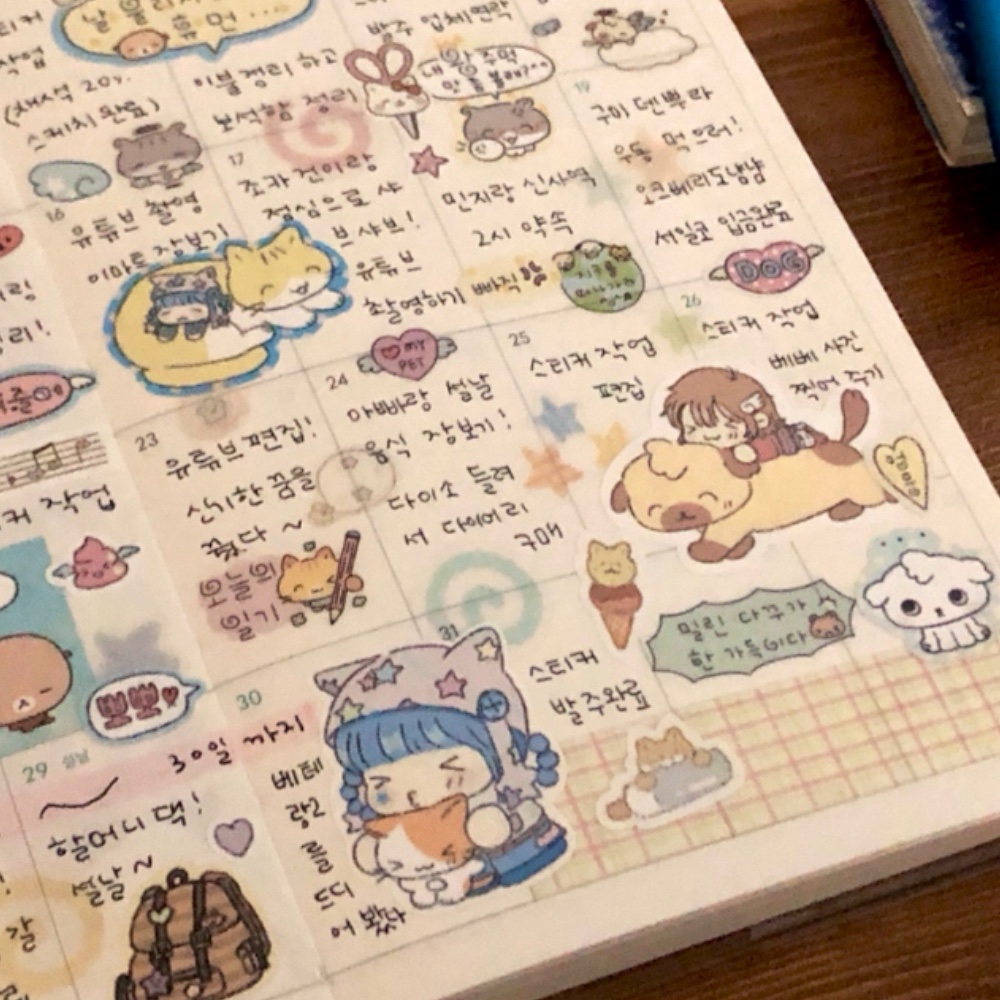 날
작업
(채색 20%
스케치 완료)
이불 갱리 하고
보석함 정리
발주 업체연락
내 왕 주먹
맛 좀 볼래?
16
유튜브 촬영
이마트 장보기
17
조카 건이랑
점심으로 샤
브샤브!
유튜브
촬영하기
민지랑 신사역
2시 약속
빠직
지구를
19
구미 덴뿌라
우동 먹으러!
오코베리도냠냠
세일코 입금완료
DOG
23
유튜브 편집!
신기한 꿈을
꿨다 ~
오늘의
일기
24
MY
PET
아빠랑 설날
음식 장보기!
다이소 들려
서 다이어리
구매
25
스티커 작업
편집
26
스티커 작업
베베 사진
찍어 주기
커 작업
뽀뽀
29 설날
할머니 댁!
설날 ~
30
30일 까지
베테
랑2
를
드디
어 봤다
31
스티커
발주완료
밀린 다꾸가
한 가득이다